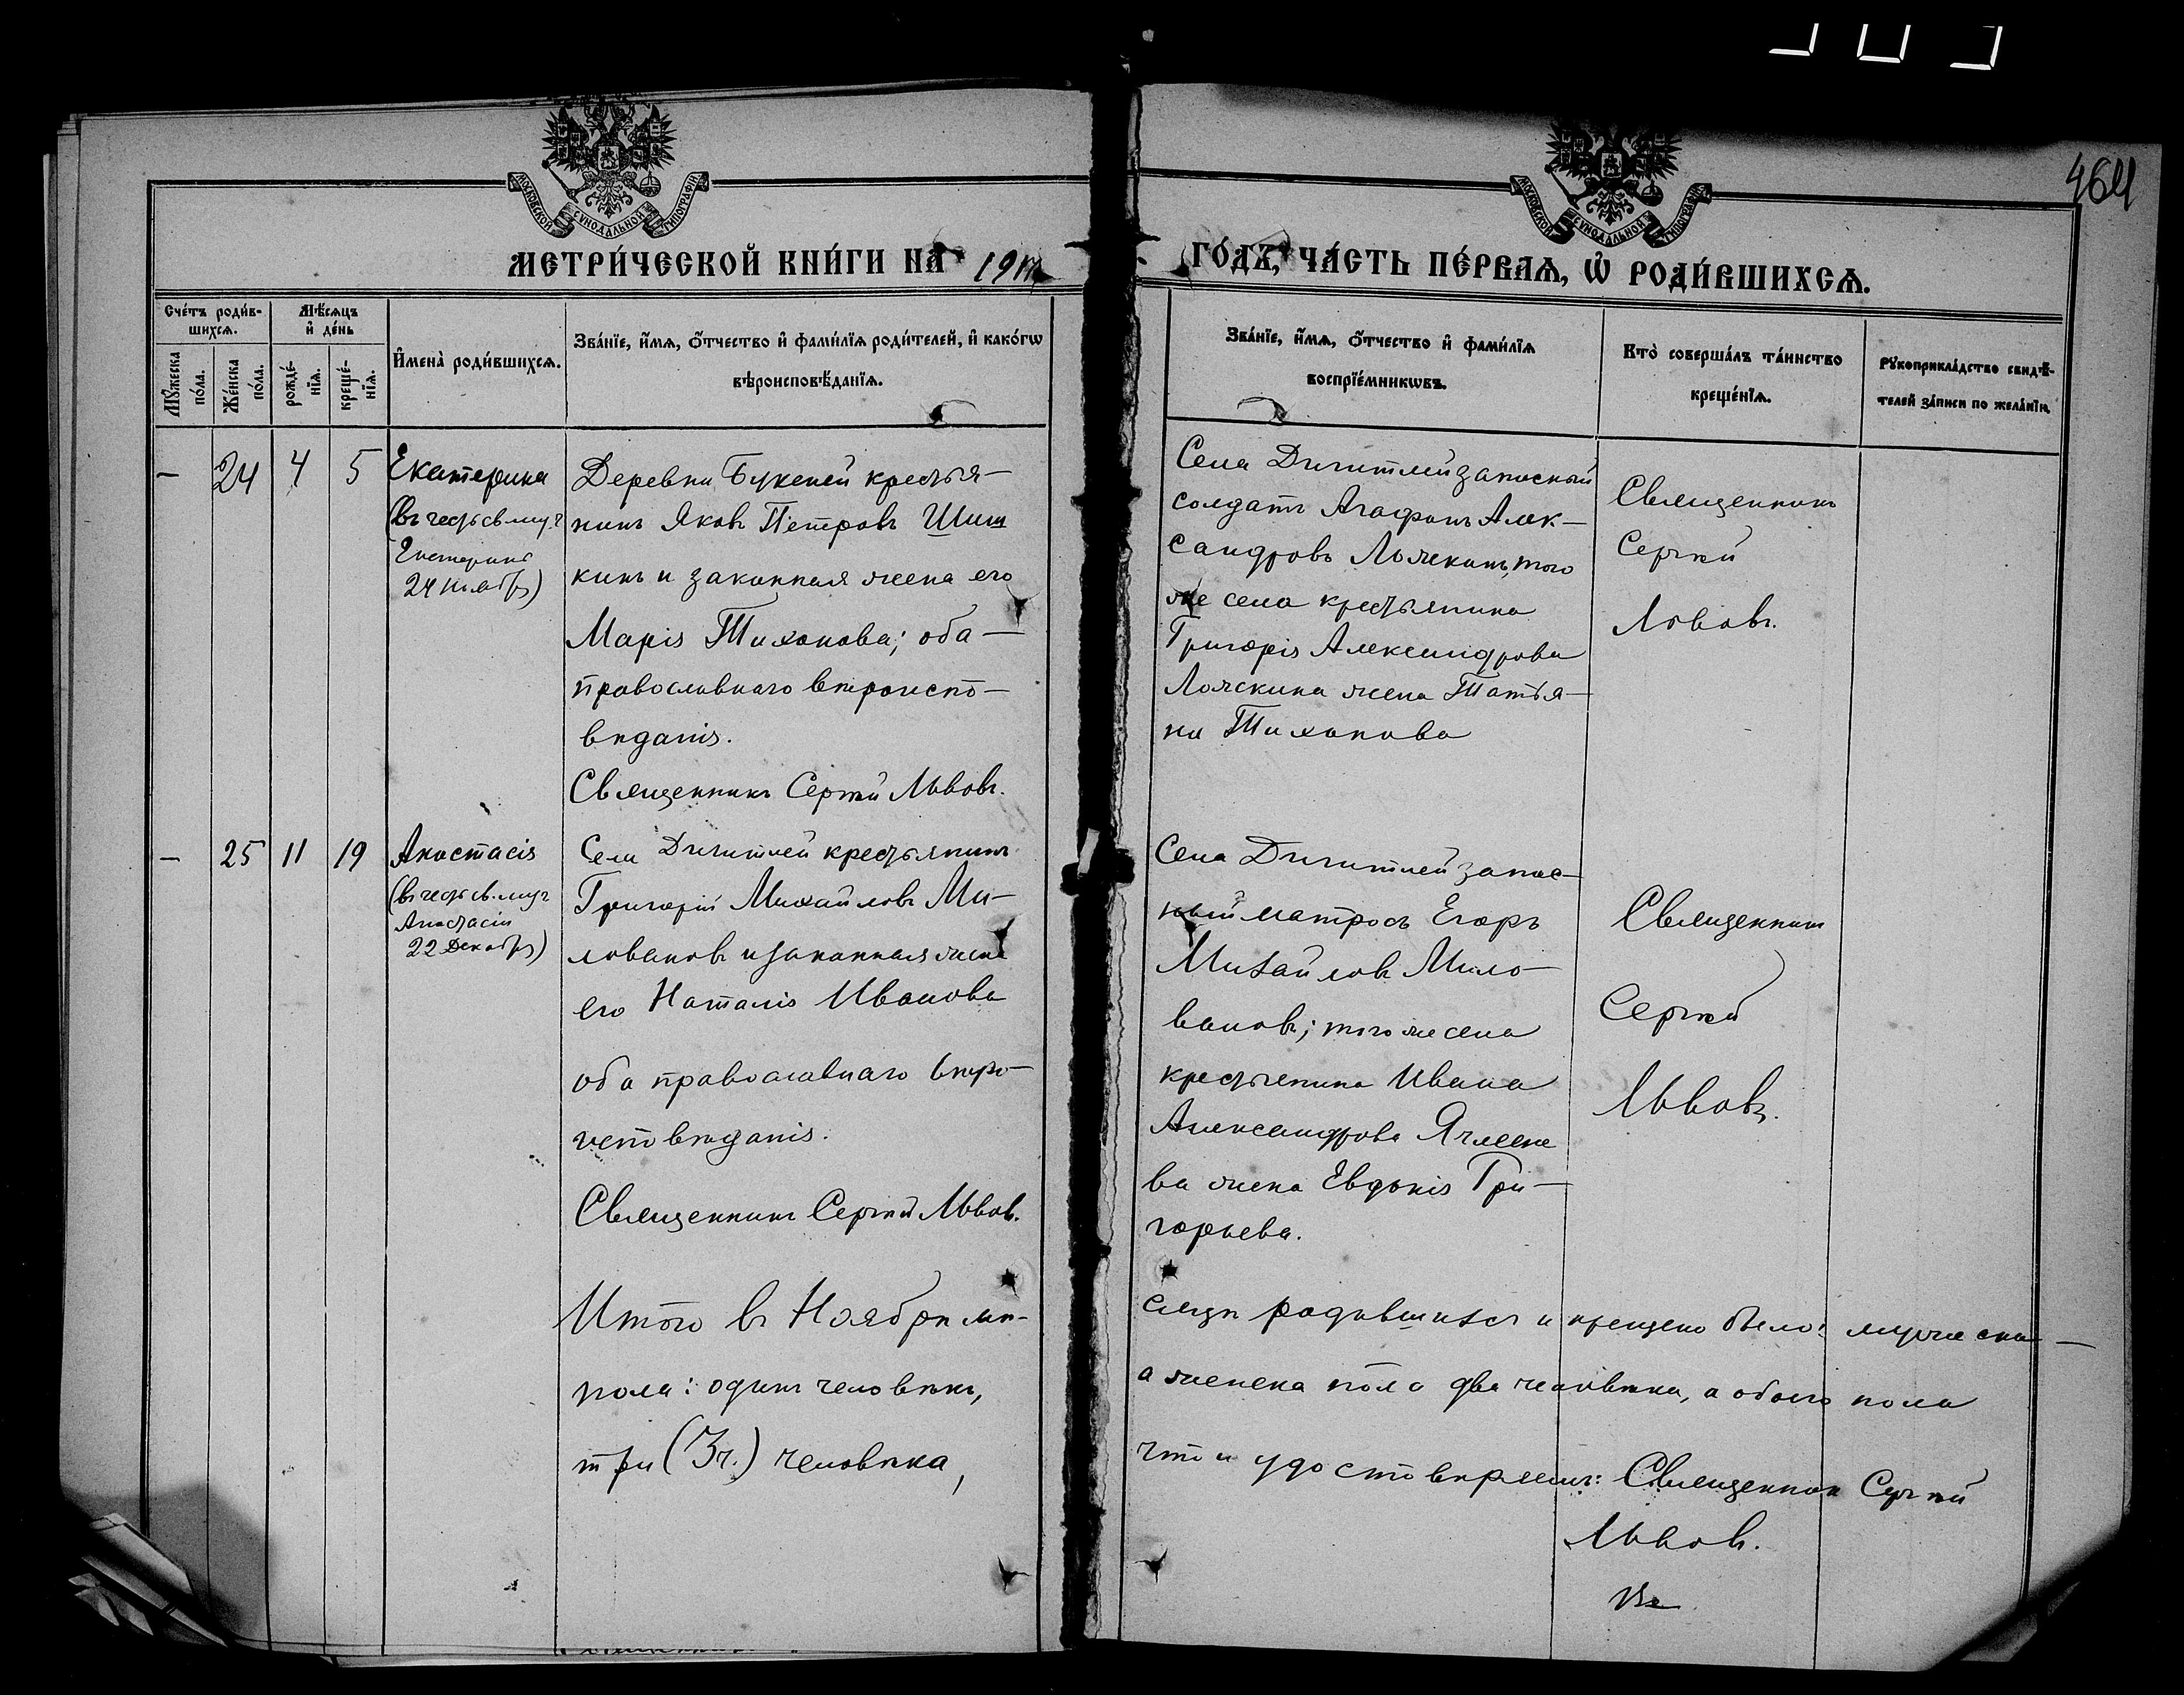 464
МОСКОВСКОЙ СѴНОДАЛЬНОЙ ТИПОГРАФІИ
МОСКОВСКОЙ СѴНОДАЛЬНОЙ ТИПОГРАФІИ
МЕТРИ́ЧЕСКОЙ КНИ́ГИ НА
ГО́ДЪ, ЧА́СТЬ ПЕ́РВАѦ, Ѡ҆ РОДИ́ВШИХСѦ.
Сче́тъ роди́в-
шихсѧ.
Мѣ́сѧцъ
и҆ де́нь
Мꙋ́жеска
по́ла.
Же́нска
по́ла.
рожде́-
нїѧ.
креще́-
нїѧ.
И҆мена̀ роди́вшихсѧ.
Зва́нїе, и҆́мѧ, ѻ҆́тчество и҆ фами́лїѧ роди́телей, и҆ како́гѡ
вѣроисповѣ́данїѧ.
Зва́нїе, и҆́мѧ, ѻ҆́тчество и҆ фами́лїѧ
воспрїе́мникѡвъ.
Кто̀ соверша́лъ та́инство
креще́нїѧ.
Рꙋкоприкла́дство свидѣ́-
телей за́писи по жела́нїю.
— 24 4 5 Екатерина
(въ честь св. муч.
Екатерины
24 ноября)
Деревни Букеней крестья-
нинъ Яковъ Петровъ Шиш
кинъ и законная жена его
Марія Тихонова; оба
православнаго вѣроиспо-
вѣданія.
Священникъ Сергій Львовъ.
Села Дигитлей запасный
солдатъ Агафонъ Алек-
сандровъ Ложкинъ, того
же села крестьянина
Григорія Александрова
Ложкина жена Татья-
на Тихонова
Священникъ
Сергій
Львовъ.
— 25 11 19 Анастасія
(въ честь св. муч
Анастасіи
22 Декабря)
Села Дигитлей крестьянинъ
Григорій Михайловъ Ми-
ловановъ и законная жена
его Наталія Иванова
оба православнаго вѣро-
исповѣданія.
Священникъ Сергій Львовъ.
Села Дигитлей запас-
ный матросъ Егоръ
Михайловъ Мило-
вановъ; того же села
крестьянина Ивана
Александрова
ва жена Евдокія Гри-
горьева.
Священникъ
Сергій
Львовъ.
Итого въ Ноябрѣ мѣ-
сяцѣ родившихся и крещено было: мужеска
пола: одинъ человѣкъ,
а женска пола два человѣка, а обоего пола
три (3 ч.) человѣка,
что и удостовѣряемъ: Священникъ Сергій
Львовъ.